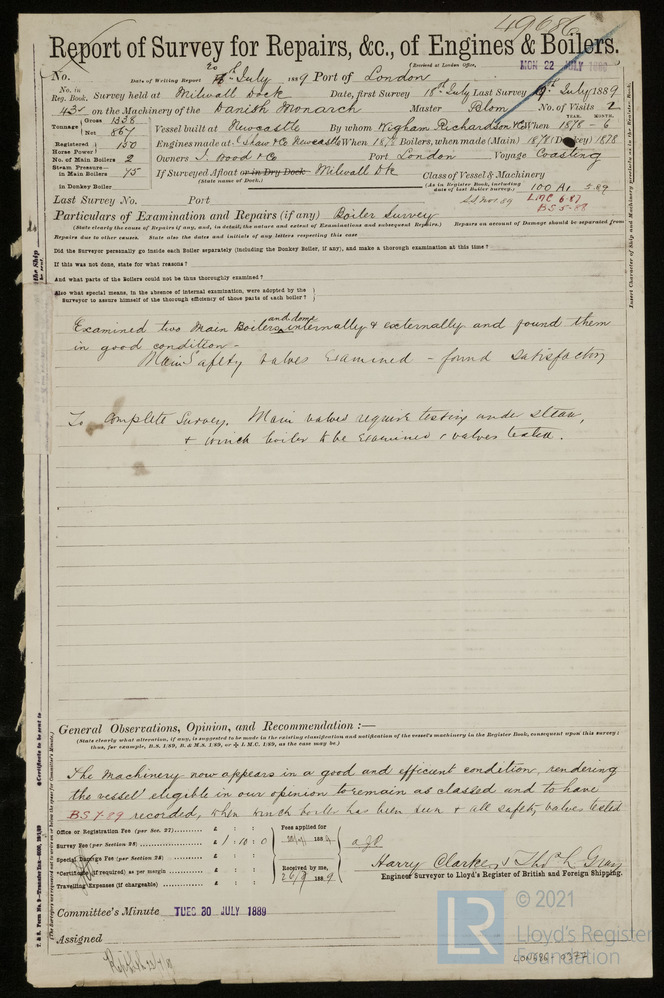 49686
Report of Survey for Repairs, &c., of Engines & Boilers.
(Received at London Office, MON 22 JULY 1889
No. Date of Writing Report 20th July 1889 Port of London
No. in Reg. Book. Survey held at Milwall Dock Date, first Survey 18th July Last Survey 19th July 1889
435 on the Machinery of the Danish Monarch Master Blom No. of Visits 2
Tonnage { Gross 1338 Net 867
Vessel built at Newcastle By whom Wigham Richardson & Co When YEAR. 1878 MONTH. - 6
Registered Horse Power } 150 Engines made at Newcastle When 1878 Boilers, when made (Main) 1878 (Donkey) 1878
No. of Main Boilers 2 Owners J. Wood & Co Port London Voyage Coasting
Steam Pressure— in Main Boilers 75 If Surveyed Afloat or in Dry Dock Milwall Dk
(State name of Dock.)
Class of Vessel & Machinery
(As in Register Book, including date of last Boiler Survey.) 100 A1 5.89
in Donkey Boiler
SS No1 89 LMC 6.87
Last Survey No. Port BS 5-88
Particulars of Examination and Repairs (if any) Boiler Survey
(State clearly the cause of Repairs if any, and, in detail, the nature and extent of Examinations and subsequent Repairs.) Repairs on amount of Damage should be separated from
Repairs due to other causes. State also the dates and initials of any letters respecting this case
Did the Surveyor personally go inside each Boiler separately (including the Donkey Boiler, if any), and make a thorough examination at this time?
If this was not done, state for what reasons?
And what parts of the Boilers could not be thus thoroughly examined?
Also what special means, in the absence of internal examination, were adopted by the
Surveyor to assure himself of the thorough efficiency of those parts of each boiler?
Examined two Main Boilers and dome internally & externally and found them
in good condition -
Main Safety valves Examined - found satisfactory
To Complete Survey. Main valves require testing under steam,
& winch boiler to be Examined & valves tested.
General Observations, Opinion, and Recommendation :—
(State clearly what alteration, if any, is suggested to be made in the existing classification and notification of the vessel's machinery in the Register Book, consequent upon this survey;
thus, for example, B.S. 1/89, B. & M.S. 1/89, or ✠ L.M.C. 1/89, as the case may be.)
The Machinery now appears in a good and efficient condition, rendering
the vessel eligible in our opinion to remain as classed and to have
BS 7.89 recorded, when winch boiler has been seen & all safety valves tested
Office or Registration Fee (per Sec. 27) £ : :
Survey Fee (per Section 28) £ 1 : 10 : 0
Special Damage Fee (per Section 28) £ : :
*Certificate (if required) as per margin £ : :
Travelling Expenses (if chargeable) £ : :
Fees applied for 1889
Received by me, 1889
Harry Clarke & Thos. L. Gray
Engineer Surveyor to Lloyd's Register of British and Foreign Shipping.
Committee's Minute TUES 30 JULY 1889
Assigned
LON686-0377
© 2021
LR
Lloyd's Register
Foundation
Insert Character of Ship and Machinery precisely as in the Register Book.
the Ship
*Certificate to be sent to